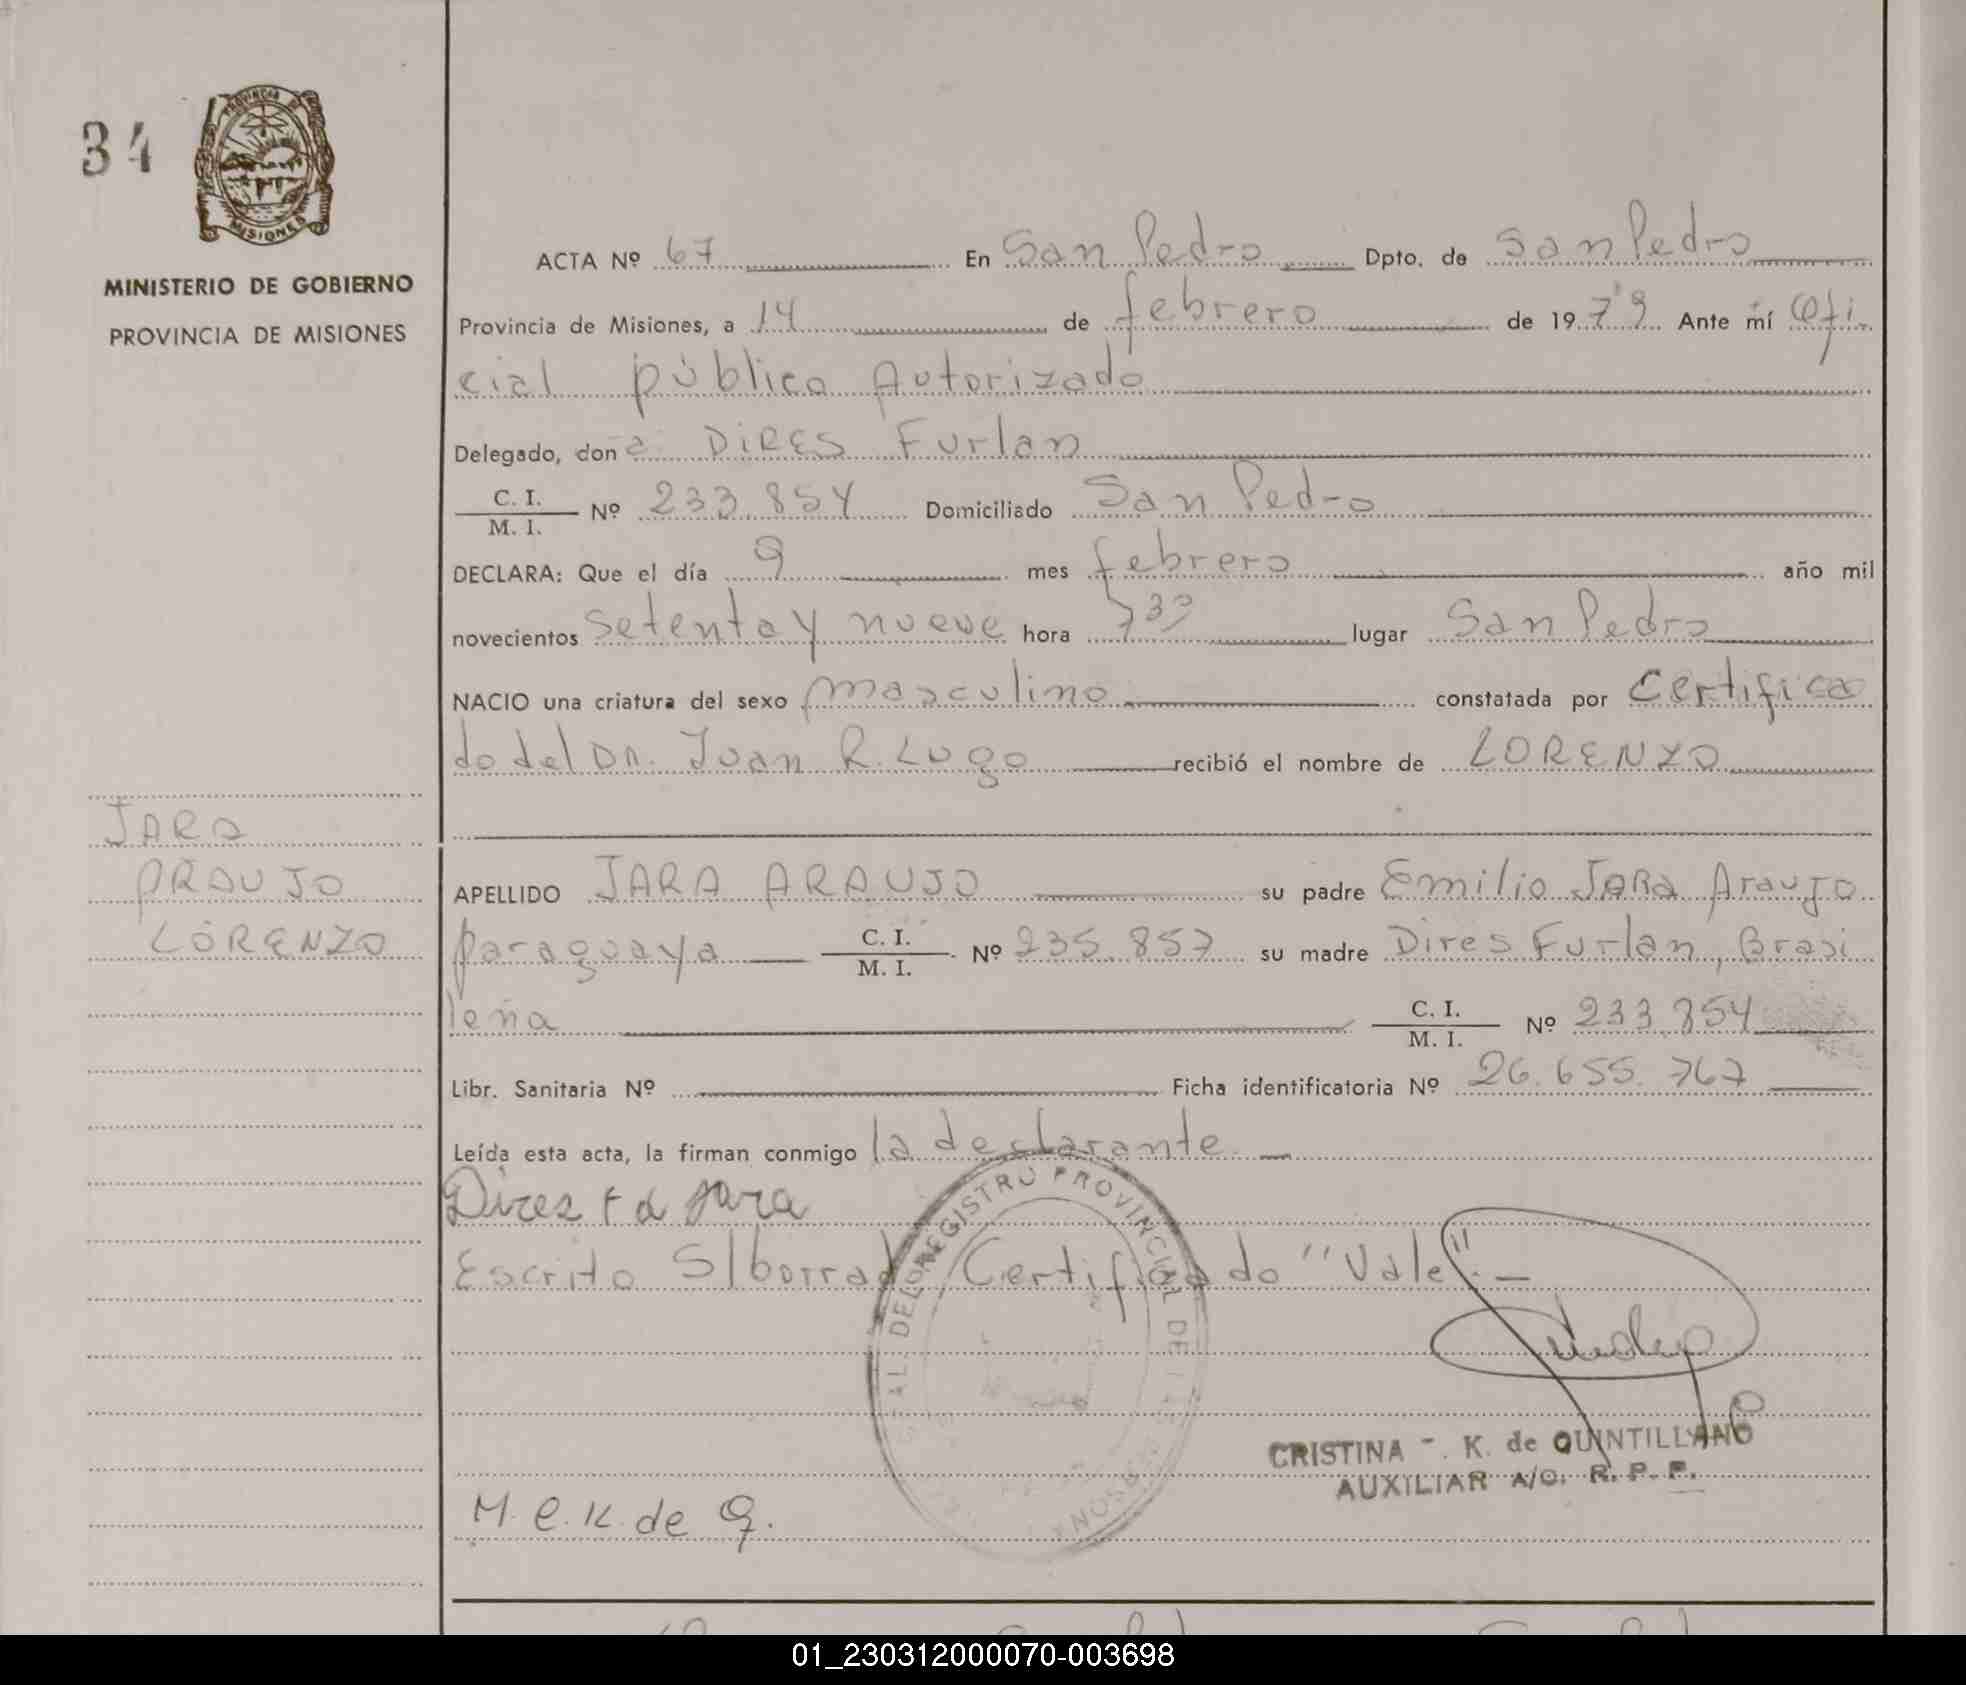 34
PROVINCIA DE
MISIONES
MINISTERIO DE GOBIERNO
PROVINCIA DE MISIONES
ACTA Nº 67 En San Pedro Dpto. de San Pedro
Provincia de Misiones, a 14 de febrero de 1979 Ante mí Ofi-
cial público Autorizado
Delegado, doña DIRES Furlan
C. I.
M. I. Nº 233.854 Domiciliado San Pedro
DECLARA: Que el día 9 mes febrero año mil
novecientos setenta y nueve hora 7 30 lugar San Pedro
NACIO una criatura del sexo masculino constatada por Certifica
do del Dr. Juan R. Lugo recibió el nombre de LORENZO
JARA
ARAUJO
LORENZO
APELLIDO JARA ARAUJO su padre Emilio JARA Araujo
paraguaya C. I.
M. I. Nº 235.857 su madre Dires Furlan, Brasi
leña C. I.
M. I. Nº 233.854
Libr. Sanitaria Nº Ficha identificatoria Nº 26.655.767
Leída esta acta, la firman conmigo la declarante
Dires F d Jara
Escrito S/borrado Certificado "Vale"
REGISTRO PROVINCIAL DE LAS PERSONAS
CRISTINA - K. de QUINTILLANO
AUXILIAR A/C. R. P. P.
M. C. K. de Q.
01_230312000070-003698